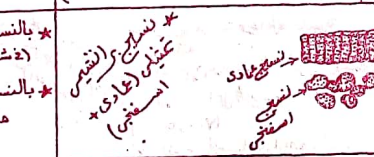 * بالنس
(خش
* بالنس
* نسيج برانشيمى
تمثيلى (عمادى +
اسفنجى)
نسيج عمادى
نسيج
اسفنجى